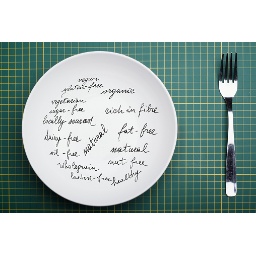 vegan
gluten-free
organic
vegetarian
sugar-free
rich in fibre
locally sourced
dairy-free
natural
fat-free
oil-free
natural
wholegrain
nut free
lactose-free
healthy